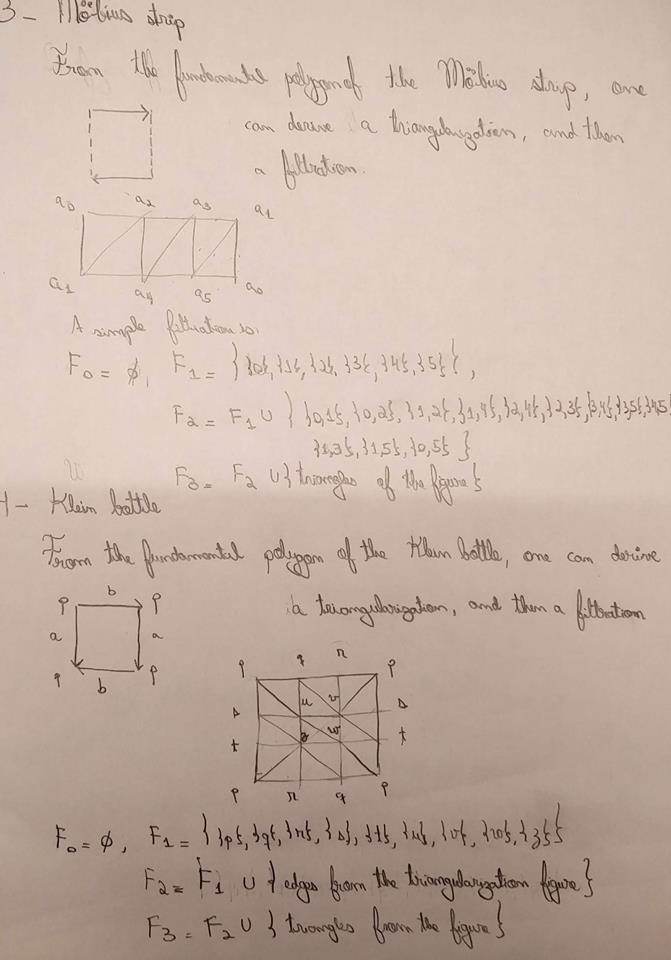 3 - Möbius strip
From the fundamental polygon of the Möbius strip, one
can derive a triangularization, and then
a filtration.
a0 a2 a3 a1
a1 a4 a5 a0
A simple filtration is:
F0 = ∅, F1 = {{0}, {1}, {2}, {3}, {4}, {5}},
F2 = F1 ∪ {{0,1}, {0,2}, {1,2}, {1,4}, {2,4}, {2,3}, {3,4}, {3,5}, {4,5}
{1,3}, {1,5}, {0,5}}
F3 = F2 ∪ {triangles of the figure}
4 - Klein bottle
From the fundamental polygon of the Klein bottle, one can derive
a triangularization, and then a filtration
p b p
a a
p b p
p q r p
s u v s
t z w t
p r q p
F0 = ∅, F1 = {{p}, {q}, {r}, {s}, {t}, {u}, {v}, {w}, {z}}
F2 = F1 ∪ {edges from the triangularization figure}
F3 = F2 ∪ {triangles from the figure}